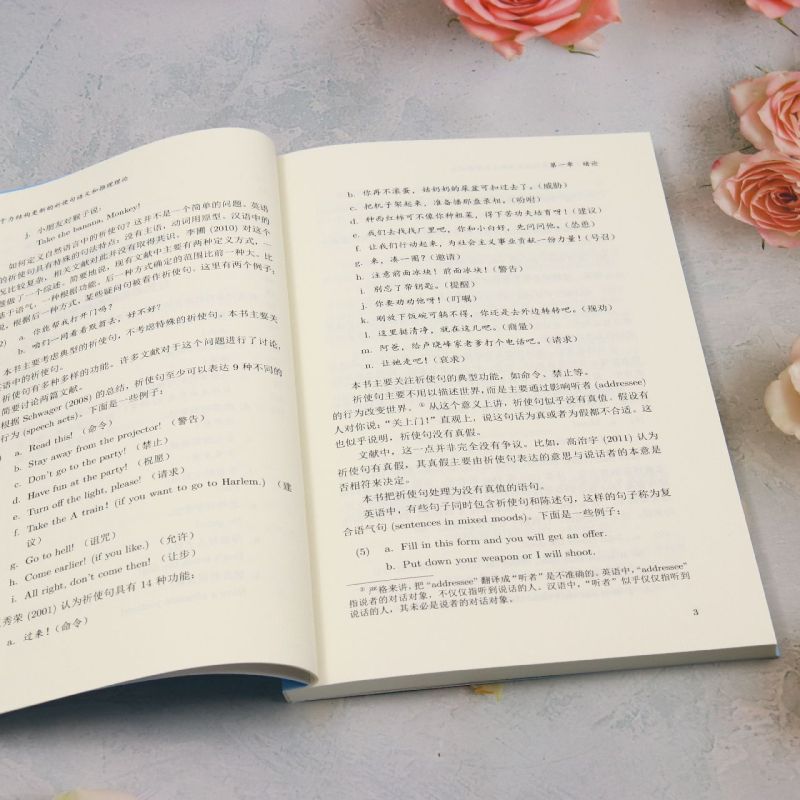 于力结构更新的祈使句语义和推理理论
j. 小朋友对猴子说:
Take the banana, Monkey!
如何定义自然语言中的祈使句? 这并不是一个简单的问题。英语
的祈使句具有特殊的句法特点: 没有主语, 动词用原型。汉语中的
况比较复杂, 相关文献对此并没有取得共识。李圃 (2010) 对这个
题做了一个综述。简要地说, 现有文献中主要有两种定义方式, 一
基于语气, 一种根据功能。后一种方式确定的范围比前一种大。比
说, 根据后一种方式, 某些疑问句被看作祈使句。这里有两个例子:
a. 你能帮我打开门吗?
b. 咱们一同去看戏昔去, 好不好?
本书主要考虑典型的祈使句, 不考虑特殊的祈使句。本书主要关
英语中的祈使句。
祈使句有多种多样的功能。许多文献对于这个问题进行了讨论,
简要讨论两篇文献。
根据 Schwager (2008) 的总结, 祈使句至少可以表达 9 种不同的
行为 (speech acts)。下面是一些例子:
a. Read this! (命令)
b. Stay away from the projector! (警告)
c. Don't go to the party! (禁止)
d. Have fun at the party! (祝愿)
e. Turn off the light, please! (请求)
f. Take the A train! (if you want to go to Harlem.) (建
议)
g. Go to hell! (诅咒)
h. Come earlier! (if you like.) (允许)
i. All right, don't come then! (让步)
秀荣 (2001) 认为祈使句具有 14 种功能:
a. 过来! (命令)
第一章 绪论
b. 你再不滚蛋, 姑奶奶的尿盆可扣过去了。(威胁)
c. 把机子架起来, 准备播那盘录相。(吩咐)
d. 种西红柿可不像你种粗菜, 得下苦功夫结育呀! (建议)
e. 我们去找找厂里吧, 你和小白好, 先问问他。(怂恿)
f. 让我们行动起来, 为社会主义事业贡献一份力量! (号召)
g. 来, 凑一圈? (邀请)
h. 注意前面冰块! 前面冰块! (警告)
i. 别忘了带钥匙。(提醒)
j. 你要劝劝他呀! (叮嘱)
k. 刚放下饭碗可躺不得, 你还是去外边转转吧。(规劝)
l. 这里挺清净, 就在这儿吧。(商量)
m. 阿爸, 给卢晓峰家老爹打个电话吧。(请求)
n. 让她走吧! (哀求)
本书主要关注祈使句的典型功能, 如命令、禁止等。
祈使句主要不用以描述世界, 而是主要通过影响听者 (addressee)
的行为改变世界。① 从这个意义上讲, 祈使句似乎没有真值。假设有
人对你说: “关上门!” 直观上, 说这句话为真或者为假都不合适。这
也似乎说明, 祈使句没有真假。
文献中, 这一点并非完全没有争议。比如, 高治宇 (2011) 认为
祈使句有真假, 其真假主要由祈使句表达的意思与说话者的本意是
否相符来决定。
本书把祈使句处理为没有真值的语句。
英语中, 有些句子同时包含祈使句和陈述句, 这样的句子称为复
合语气句 (sentences in mixed moods)。下面是一些例子:
(5) a. Fill in this form and you will get an offer.
b. Put down your weapon or I will shoot.
① 严格来讲, 把 “addressee” 翻译成 “听者” 是不准确的。英语中, “addressee”
指说者的对话对象, 不仅仅指听到说话的人。汉语中, “听者” 似乎仅仅指听到
说话的人, 其未必是说者的对话对象。
3